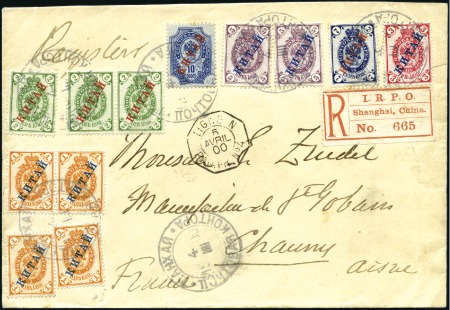 Registered
КИТАЙ
КИТАЙ
КИТАЙ
КИТАЙ
КИТАЙ
КИТАЙ
КИТАЙ
КИТАЙ
R
I. R. P. O.
Shanghai, China.
No. 665
LIGNE N
5
AVRIL
00
Monsieur E. Zindel
Manufacture de St Gobain
Chauny
France
aisne
КИТАЙ
КИТАЙ
КИТАЙ
КИТАЙ